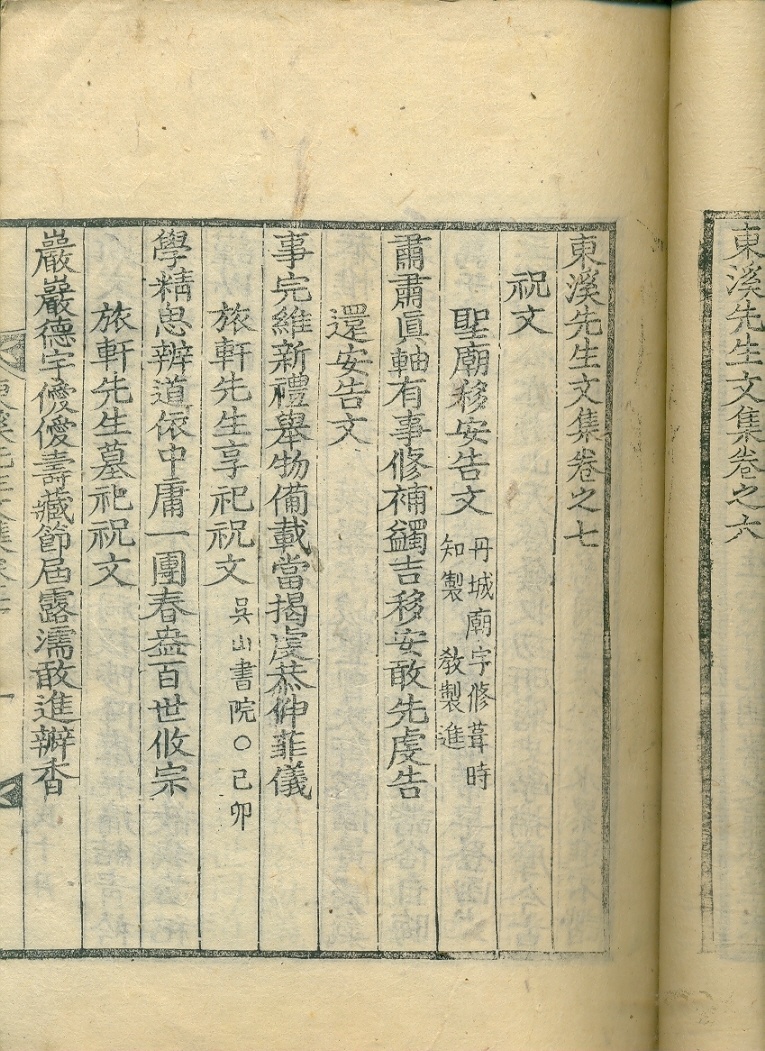 東溪先生文集卷之六
東溪先生文集卷之七
祝文
聖廟移安告文 丹城廟宇修葺時
知製 教製進
肅肅眞軸有事修補蠲吉移安敢先虔告
還安告文
事完維新禮舉物備載當揭虔恭伸菲儀
旅軒先生享祀祝文 吳山書院○己卯
學精思辨道依中庸一團春盎百世攸宗
旅軒先生墓祀祝文
巖巖德宇優優壽藏節屆露濡敢進瓣香